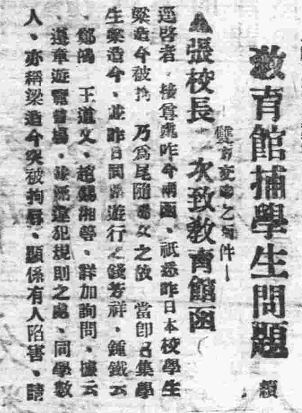 教育館捕學生問題 續
雙方交涉之函件
▲張校長一次致教育館函
逕啓者、接貴處昨今兩函、祇悉昨日本校學生
梁造今被拘、乃爲尾隨婦女之故、當即召集學
生梁造今、並昨日同游遊行之錢芳祥、鍾鐵云
、鄧鴻、王道文、趙錫湘等、詳加詢問、據云
、遵章遊覽會場、並無違犯規則之處、同學數
人、亦稱梁造今突被拘辱、顯係有人陷害、請